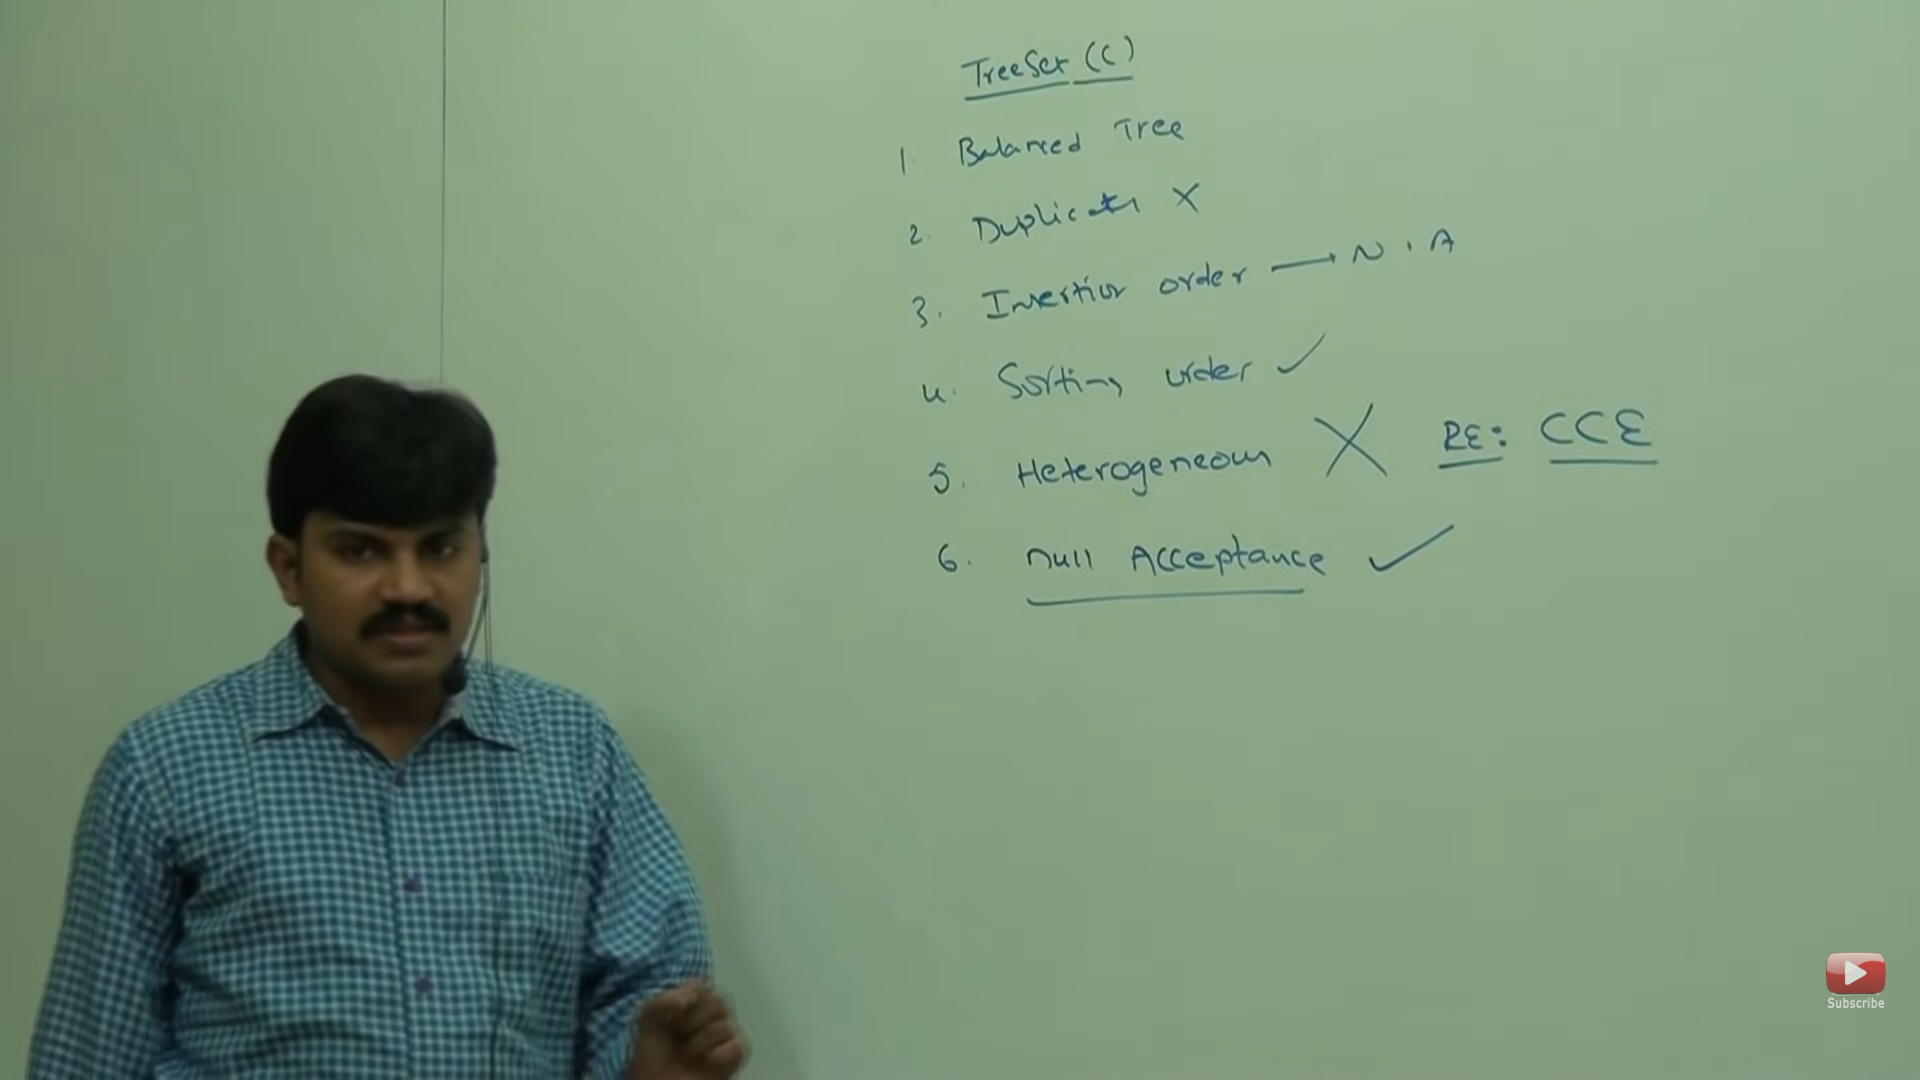 TreeSet (C)
1. Balanced Tree
2. Duplicates X
3. Insertion order → N.A
4. Sorting order ✓
5. Heterogeneous X RE: CCE
6. null Acceptance ✓
Subscribe